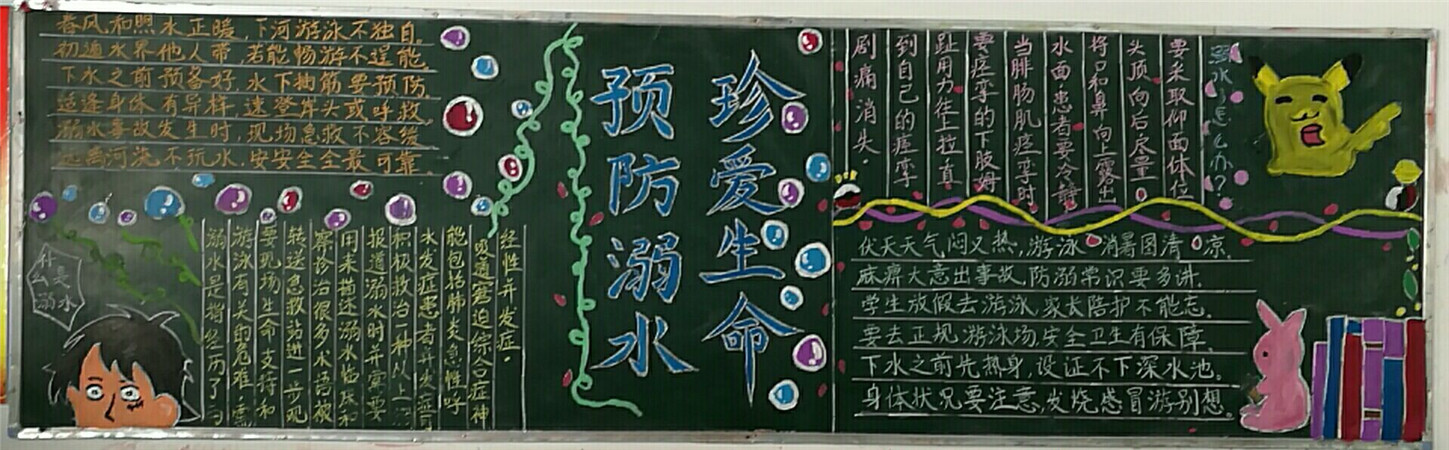 春风和照水正暖，下河游泳不独自。
初通水界他人带，若能畅游不逞能。
下水之前预备好，水下抽筋要预防。
适逢身体有异样，速登岸头或呼救。
溺水事故发生时，现场急救不容缓
远离河流不玩水，安安全全最可靠。
什么是溺水
溺水是指经历了与
游泳有关的危难，需
要现场生命支持和
转送急救站进一步观
察诊治很多术语被
用来描述溺水临床和
报道溺水时并需要
积极救治一种以上
水发症患者并
能包括肺炎急性呼
吸道窘迫综合症神
经性并发症。
珍爱生命
预防溺水
溺水了怎么办？
要采取仰面体位
头顶向后尽量
将口和鼻向上露出
水面，患者要冷静
当腓肠肌痉挛时
要痉挛的下肢拇
趾用力往上拉直
到自己的痉挛
剧痛消失。
伏天天气闷又热，游泳消暑图清凉。
麻痹大意出事故，防溺常识要多讲。
学生放假去游泳，家长陪护不能忘。
要去正规游泳场，安全卫生有保障。
下水之前先热身，设证不下深水池。
身体状况要注意，发烧感冒游别想。